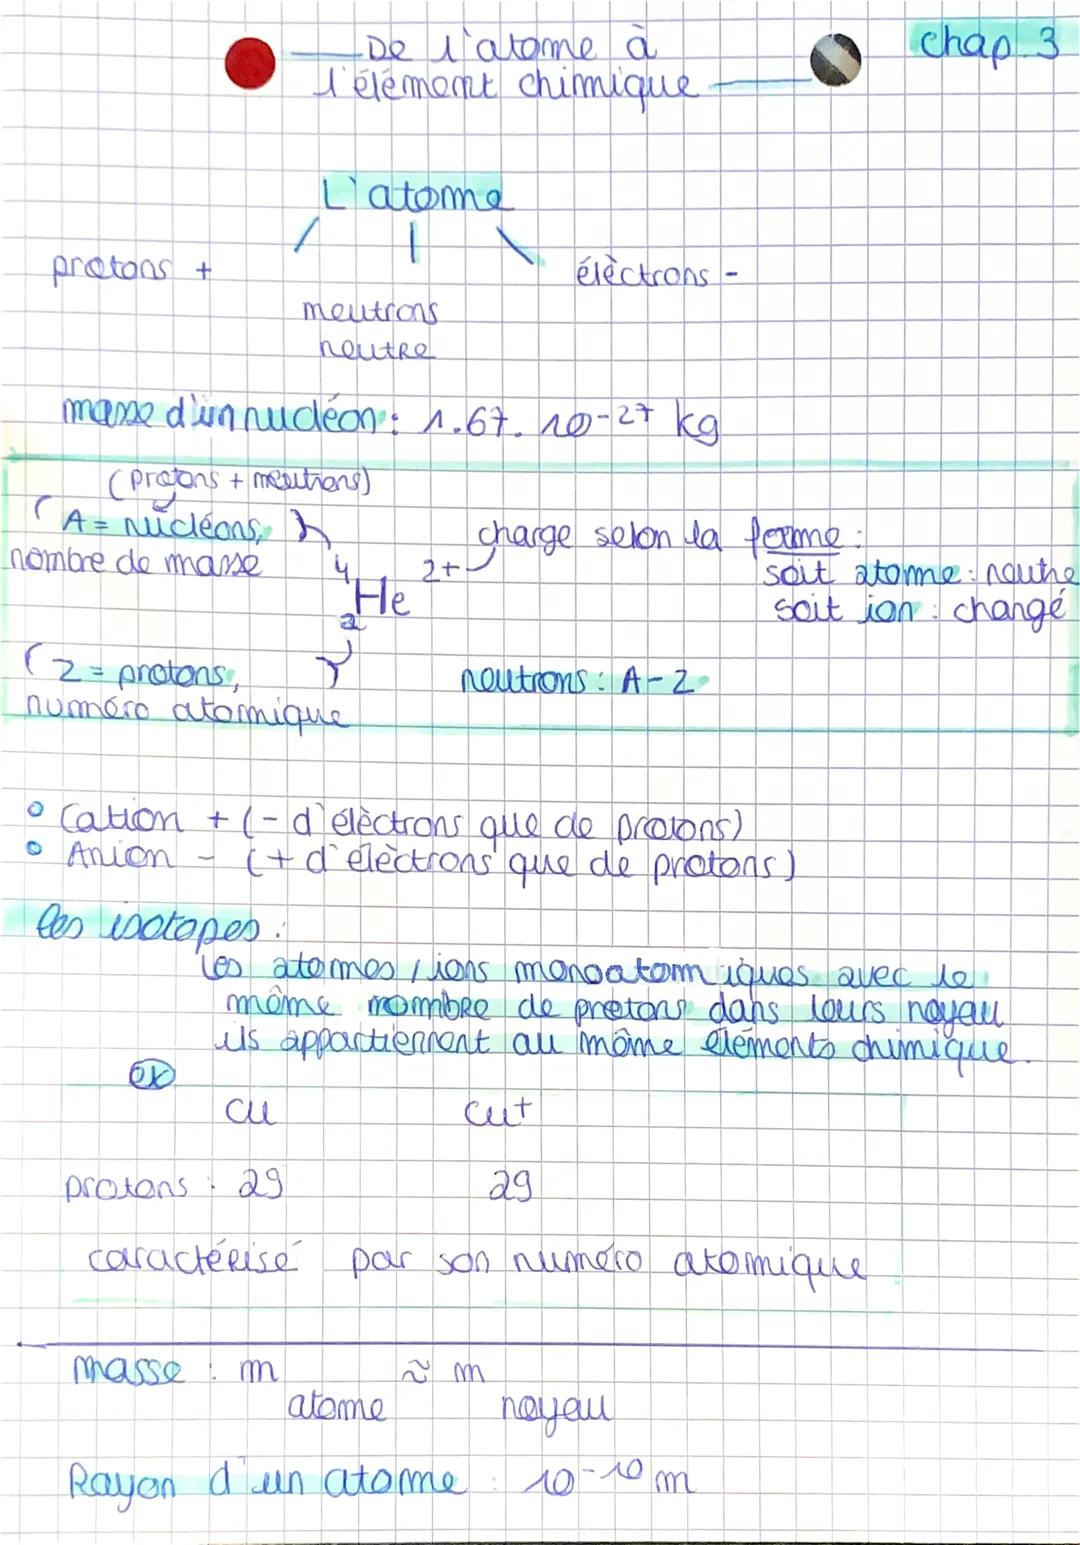 De l'atome à chap 3
l'élément chimique
L'atome
protons + électrons -
neutrons
neutre
masse d'un nucléon : 1.67. 10-27 kg
(protons + neutrons)
A = nucléons, charge selon la forme :
nombre de masse 4 He 2+ soit atome : neutre
2 soit ion : chargé
Z = protons, neutrons : A-Z
numéro atomique
Cation + (- d'élèctrons que de protons)
Anion - (+ d'élèctrons que de protons)
les isotopes :
les atomes / ions monoatomiques avec le
même nombre de protons dans leurs noyau
ils appartiennent au même éléments chimique.
ex
Cu Cu+
protons : 29 29
caractérisé par son numéro atomique
masse : m atome ≈ m noyau
Rayon d'un atome : 10-10 m